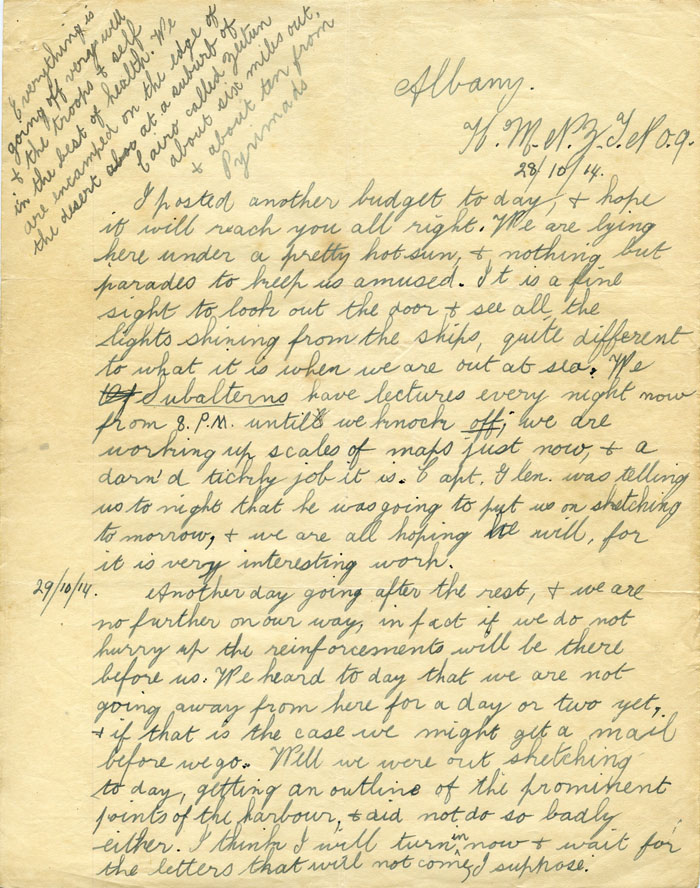 Everything is
going off very well
& the troops & self
in the best of health. We
are encamped on the edge of
the desert at a suburb of
Cairo called Zeitun
about six miles out,
& about ten from
Pyrimads
Albany.
H.M.N.Z.T. No. 9.
28/10/14.
I posted another budget to day, & hope
it will reach you all right. We are lying
here under a pretty hot sun, & nothing but
parades to keep us amused. It is a fine
sight to look out the door & see all the
lights shining from the ships, quite different
to what it is when we are out at sea. We
Subalterns have lectures every night now
from 8. P.M. until we knock off; we are
working up scales of maps just now, & a
darn'd tickly job it is. Capt. Glen. was telling
us to night that he was going to put us on sketching
to morrow, & we are all hoping he will, for
it is very interesting work.
29/10/14. Another day going after the rest, & we are
no further on our way, in fact if we do not
hurry up the reinforcements will be there
before us. We heard to day that we are not
going away from here for a day or two yet,
& if that is the case we might get a mail
before we go. Well we were out sketching
to day, getting an outline of the prominent
points of the harbour, & did not do so badly
either. I think I will turn in now & wait for
the letters that will not come, I suppose.